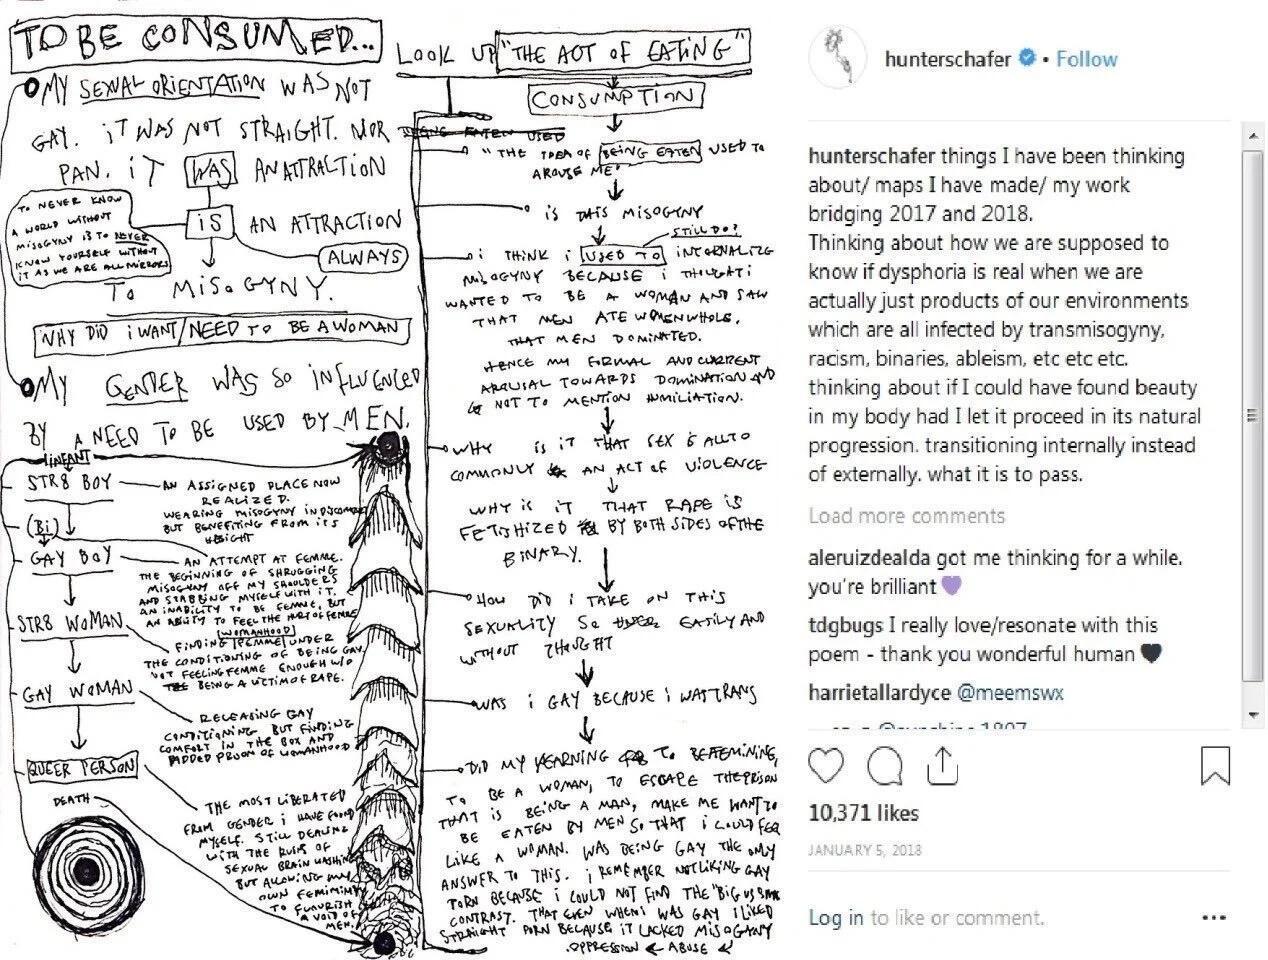 TO BE CONSUMED...
MY SEXUAL ORIENTATION WAS NOT
GAY. IT WAS NOT STRAIGHT. NOR
PAN. IT WAS AN ATTRACTION
IS AN ATTRACTION
ALWAYS
TO NEVER KNOW
A WORLD WITHOUT
MISOGYNY IS TO NEVER
KNOW YOURSELF WITHOUT
IT AS WE ARE ALL MIRRORS
TO MISOGYNY.
WHY DID I WANT/NEED TO BE A WOMAN
MY GENDER WAS SO INFLUENCED
BY A NEED TO BE USED BY MEN.
INFANT
STR8 BOY
AN ASSIGNED PLACE NOW
REALIZED.
WEARING MISOGYNY IN DISCOMFORT
BUT BENEFITING FROM ITS
HEIGHT
(Bi)
GAY BOY
AN ATTEMPT AT FEMME.
THE BEGINNING OF SHRUGGING
MISOGYNY OFF MY SHOULDERS
AND STABBING MYSELF WITH IT.
AN INABILITY TO BE FEMME, BUT
AN ABILITY TO FEEL THE HURT OF FEMME
STR8 WOMAN
WOMANHOOD
FINDING FEMME UNDER
THE CONDITIONING OF BEING GAY
NOT FEELING FEMME ENOUGH W/O
BEING A VICTIM OF RAPE.
GAY WOMAN
RELEASING GAY
CONDITIONING BUT FINDING
COMFORT IN THE BOX AND
PADDED PROOM OF WOMANHOOD
QUEER PERSON
DEATH
THE MOST LIBERATED
FROM GENDER I HAVE FOUND
MYSELF. STILL DEALING
WITH THE RUINS OF
SEXUAL BRAIN WASHING
BUT ALLOWING MY
OWN FEMININITY
TO FLOURISH
A VOID OF
MEN.
LOOK UP "THE ACT OF EATING"
CONSUMPTION
BEING EATEN USED
"THE IDEA OF BEING EATEN USED TO
AROUSE ME"
IS THIS MISOGYNY
STILL DO?
I THINK I USED TO INTERNALIZE
MISOGYNY BECAUSE I THOUGHT I
WANTED TO BE A WOMAN AND SAW
THAT MEN ATE WOMEN WHOLE.
THAT MEN DOMINATED.
HENCE MY FORMAL AND CURRENT
AROUSAL TOWARDS DOMINATION AND
NOT TO MENTION HUMILIATION.
WHY IS IT THAT SEX IS ALL TO
COMMONLY AN ACT OF VIOLENCE
WHY IS IT THAT RAPE IS
FETISHIZED BY BOTH SIDES OF THE
BINARY.
HOW DID I TAKE ON THIS
SEXUALITY SO EASILY AND
WITHOUT THOUGHT
WAS I GAY BECAUSE I WAS TRANS
DID MY YEARNING TO BE FEMININE,
TO BE A WOMAN, TO ESCAPE THE PRISON
THAT IS BEING A MAN, MAKE ME WANT TO
BE EATEN BY MEN SO THAT I COULD FEEL
LIKE A WOMAN. WAS BEING GAY THE ONLY
ANSWER TO THIS. I REMEMBER NOT LIKING GAY
PORN BECAUSE I COULD NOT FIND THE "BIG VS SMALL
CONTRAST. THAT EVEN WHEN I WAS GAY I LIKED
STRAIGHT PORN BECAUSE IT LACKED MISOGYNY
OPPRESSION ← ABUSE
hunterschafer • Follow
hunterschafer things I have been thinking
about/ maps I have made/ my work
bridging 2017 and 2018.
Thinking about how we are supposed to
know if dysphoria is real when we are
actually just products of our environments
which are all infected by transmisogyny,
racism, binaries, ableism, etc etc etc.
thinking about if I could have found beauty
in my body had I let it proceed in its natural
progression. transitioning internally instead
of externally. what it is to pass.
Load more comments
aleruizdealda got me thinking for a while.
you're brilliant 💜
tdgbugs I really love/resonate with this
poem - thank you wonderful human 🖤
harrietallardyce @meemswx
10,371 likes
JANUARY 5, 2018
Log in to like or comment.